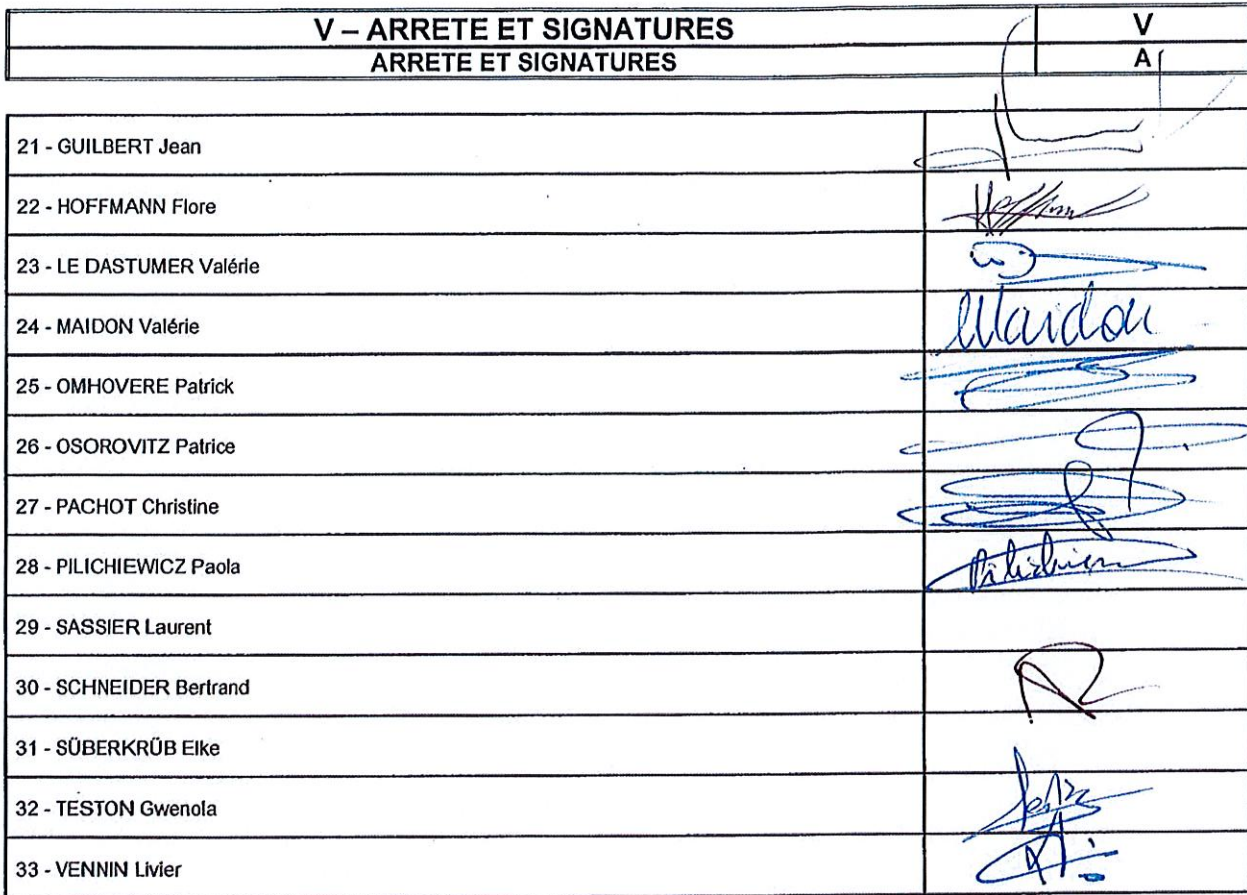 V – ARRETE ET SIGNATURES V
ARRETE ET SIGNATURES A
21 - GUILBERT Jean
22 - HOFFMANN Flore
23 - LE DASTUMER Valérie
24 - MAIDON Valérie Maidon
25 - OMHOVERE Patrick
26 - OSOROVITZ Patrice
27 - PACHOT Christine
28 - PILICHIEWICZ Paola
29 - SASSIER Laurent
30 - SCHNEIDER Bertrand
31 - SÜBERKRÜB Elke
32 - TESTON Gwenola
33 - VENNIN Livier